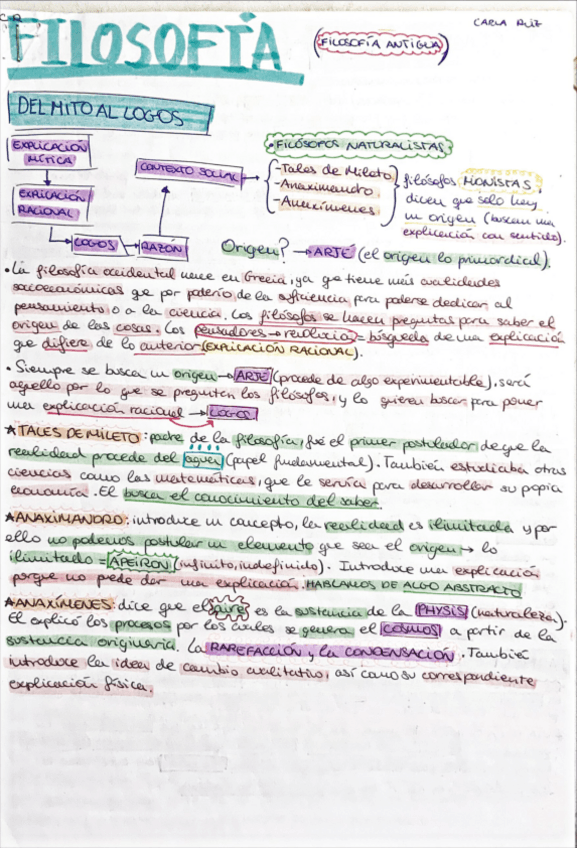 CARLA RUIZ
FILOSOFÍA
(FILOSOFÍA ANTIGUA)
DEL MITO AL LOGOS
EXPLICACIÓN MÍTICA
EXPLICACIÓN RACIONAL
LOGOS
RAZÓN
CONTEXTO SOCIAL
• FILÓSOFOS NATURALISTAS
- Tales de Mileto
- Anaximandro
- Anaxímenes
filósofos MONISTAS,
dicen que solo hay
un origen (buscan una
explicación con sentido).
Origen? → ARJÉ (el origen lo primordial).
• La filosofía occidental nace en Grecia, ya que tiene más cualidades
socioeconómicas que por poderío de la suficiencia para poderse dedicar al
pensamiento o a la ciencia. Los filósofos se hacen preguntas para saber el
origen de las cosas. Los pensadores → = búsqueda de una explicación
que difiere de lo anterior (EXPLICACIÓN RACIONAL).
• Siempre se busca un origen → ARJÉ (procede de algo experimentable), será
aquello por lo que se pregunten los filósofos, y lo quieren buscar para poner
una explicación racional → LOGOS
★ TALES DE MILETO: padre de la filosofía, fué el primer postulador de que la
realidad procede del agua (papel fundamental). También estudiaba otras
ciencias como las matemáticas, que le servía para desarrollar su propia
economía. El busca el conocimiento del saber.
★ ANAXIMANDRO: introduce un concepto, la realidad es ilimitada y por
ello no podemos postular un elemento que sea el origen → lo
ilimitado = ÁPEIRON (infinito, indefinido). Introduce una explicación
porque no puede dar una explicación. HABLAMOS DE ALGO ABSTRACTO
★ ANAXÍMENES: dice que el aire es la sustancia de la PHYSIS (naturaleza).
El explicó los procesos por los cuales se genera el COSMOS a partir de la
sustancia originaria. La RAREFACCIÓN y la CONDENSACIÓN. También
introduce la idea de cambio cualitativo, así como su correspondiente
explicación física.